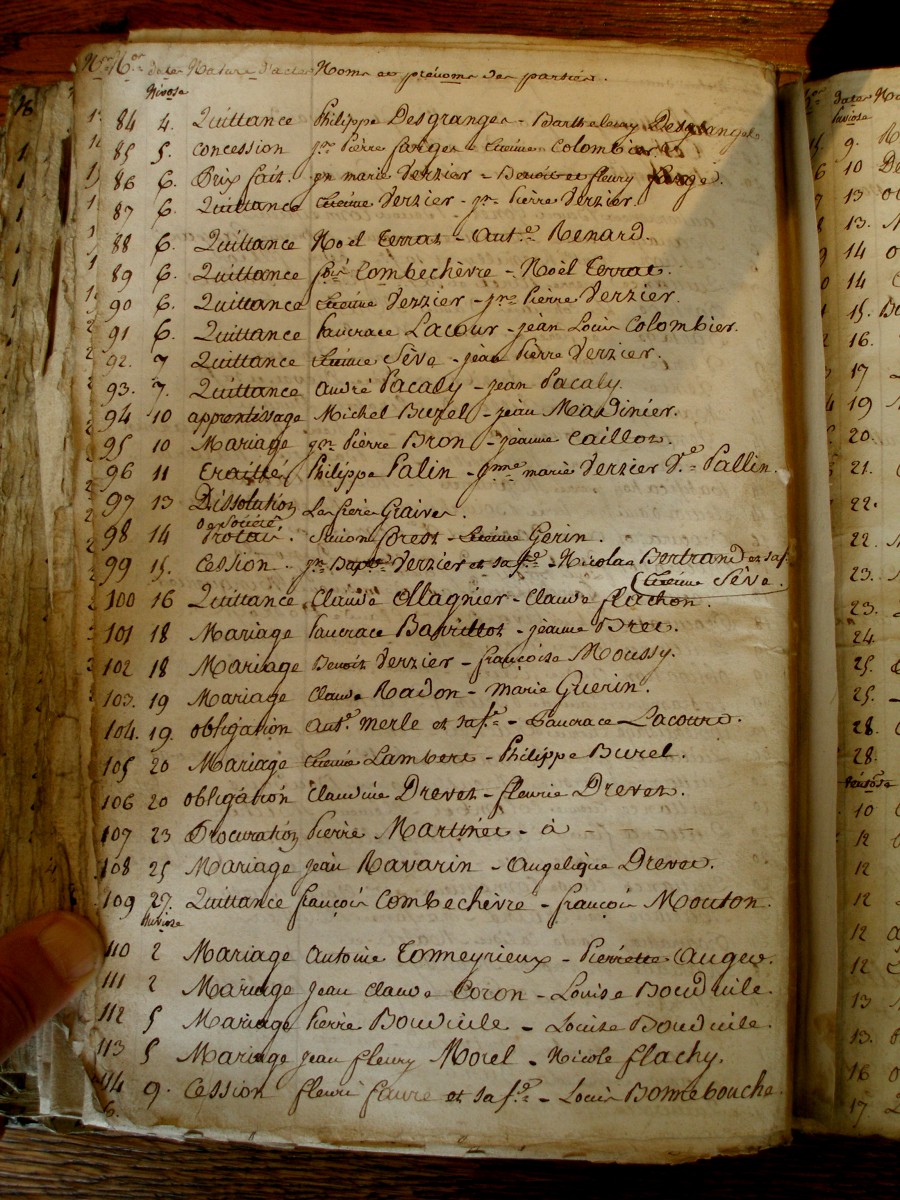 Nos. dates Nature d'actes Noms et prénoms des parties.
Nivose
84 4. Quittance Philippe Desgranges - Barthelemy Desgranges
85 5. concession jn. Pierre farges - Etienne Colombier
86 6. Prix fait. jn marie Verzier - Benoit et fleury farge.
87 6. Quittance Etienne Verzier - jn. Pierre Verzier.
88 6. Quittance Noel Terrat - Ant.e Renard.
89 6. Quittance fois Combechèvre - Noël Terrat.
90 6. Quittance Etienne Verzier - jn. Pierre Verzier.
91 6. Quittance Pancrace Lacour - jean Louis Colombier.
92. 7 Quittance Etienne Sève - jean Pierre Verzier.
93. 7. Quittance André Pacaly - jean Pacaly.
94 10 apprentissage Michel Buzel - jean Madinier.
95 10 Mariage jn. Pierre Bron - jeanne Caillot.
96 11 Traitté Philippe Palin - jme marie Verzier Ve Pallin.
97 13 Dissolution Les frères Graives.
de Societé
98 14 Protais. Simon forest - Etienne Gerin.
99 15. Cession. jn. Bapte Verzier et sa fe. - Nicolas Bertrand et sa f.
Etienne Sève.
100 16 Quittance Claude Ollagnier - Claude flachon.
101 18 Mariage Pancrace Barrittot - jeanne Bret.
102 18 Mariage Benoit Verzier - françoise Moussy.
103. 19 Mariage Claude Radon - Marie Guerin.
104. 19. obligation Ant.e merle et sa fe. - Pancrace Lacourd.
105 20 Mariage Etienne Lambert - Philippe Burel.
106 20 obligation Claudine Drevet - fleurie Drevet.
107 23 Procuration Pierre Martinet - à
108 25 Mariage jean Ravarin - Angelique Drevet.
109 27. Quittance françois Combechèvre - françois Mouton.
Pluviose
110 2 Mariage Antoine Tommeyrieux - Pierrette Auges.
111 2 Mariage jean Claude Coron - Louise Bouduile.
112 5 Mariage Pierre Bouduile - Louise Bouduile.
113 5 Mariage jean fleury Morel - Nicole flachy.
9. Cession fleuri faure et sa fe. - Louis Bonnebouche
dates
Pluviose
9.
10
13
13.
14
14
15.
16.
17
19
20.
21.
22.
22.
23.
23.
24.
25.
25.
28.
28.
Ventose
10
12
12
12
12
12
13
13.
16
17